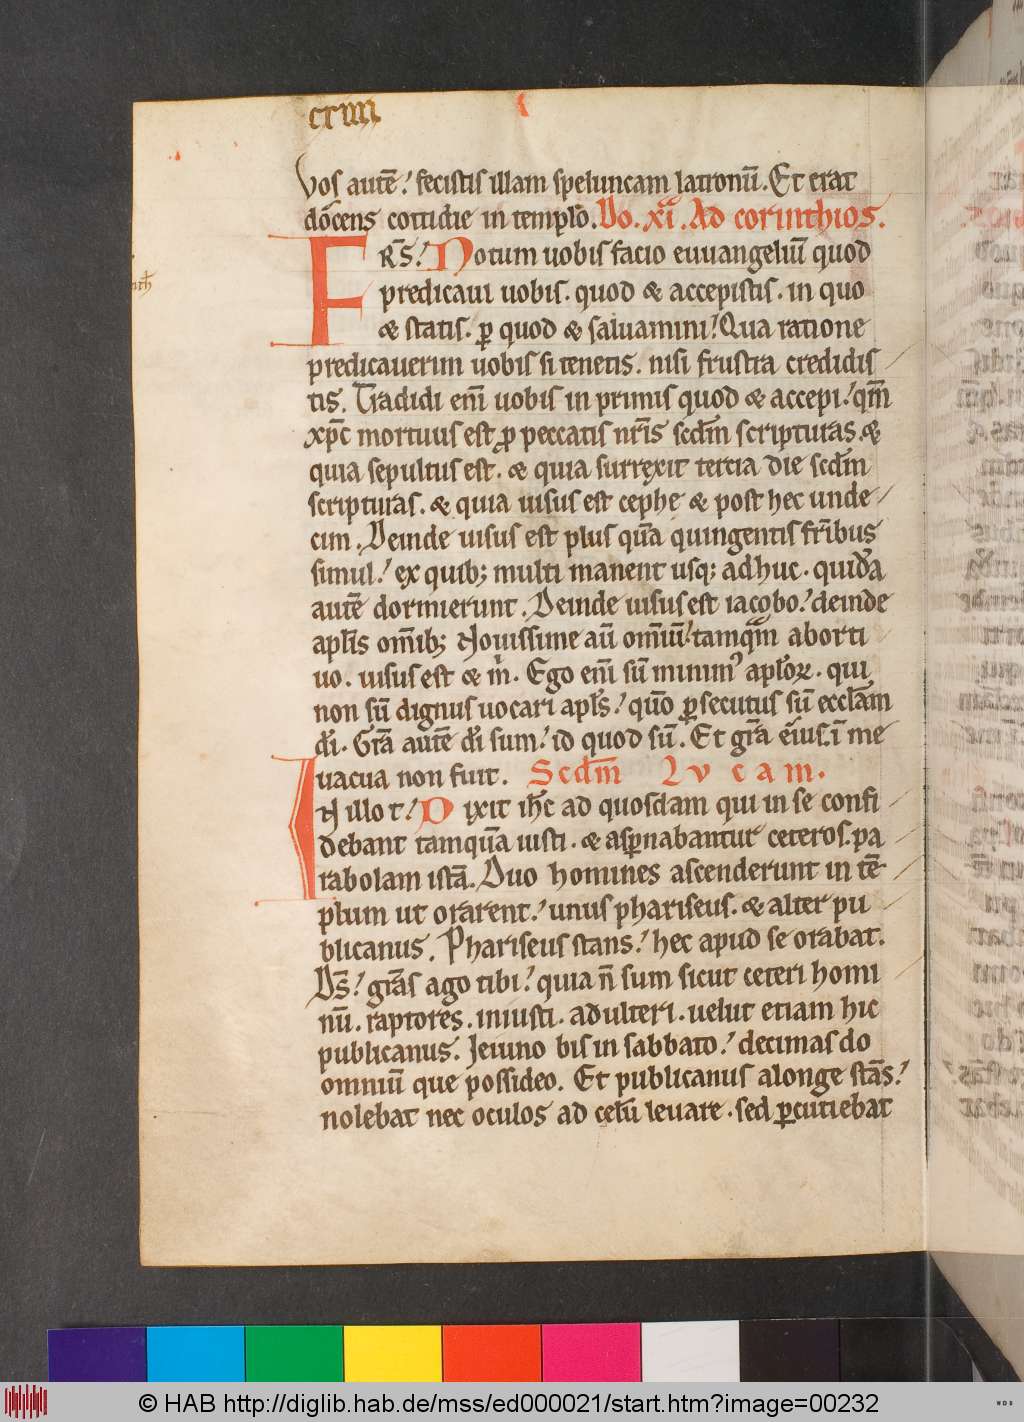 cxiiii
vos autē. fecistis illam speluncam latronū. Et erat
docens cottidie in templo. Do. xi. Ad corinthios.
FRS. Notum uobis facio euuangeliū quod
predicaui uobis. quod & accepistis. in quo
& statis. ꝑ quod & saluamini. Qua ratione
predicauerim uobis si tenetis. nisi frustra credidis
tis. Tradidi enī uobis in primis quod & accepi. qm̄
xp̄c mortuus est ꝓ peccatis nr̄is scdm̄ scripturas. &
quia sepultus est. & quia surrexit tercia die scdm̄
scripturas. & quia uisus est cephe & post hec unde
cim. Deinde uisus est plus quā quingentis fr̄ibus
simul. ex quib; multi manent usq; adhuc. quidā
autē dormierunt. Deinde uisus est iacobo. deinde
apl̄is om̄ib; Nouissime aū om̄iū. tamqm̄ aborti
uo. uisus est & m̄. Ego enī sū minimꝰ apl̄oꝝ. qui
non sū dignus uocari apl̄s. quō ꝑsecutus sū eccl̄am
dī. Grā autē dī sum. id quod sū. Et grā eius. ī me
uacua non fuit. Scdm̄ Lucam.
IN illo t. Dixit ih̄c ad quosdam qui in se confi
debant tamquā iusti. & aspnabantur ceteros. pa
rabolam istā. Duo homines ascenderunt in tē
plum ut orarent. unus phariseus. & alter pu
blicanus. Phariseus stans. hec apud se orabat.
Ds̄. grās ago tibi. quia n̄ sum sicut ceteri homi
nū. raptores. iniusti. adulteri. uelut etiam hic
publicanus. Jeiuno bis in sabbato. decimas do
omniū que possideo. Et publicanus a longe stās.
nolebat nec oculos ad celū leuare. sed ꝑcutiebat
© HAB http://diglib.hab.de/mss/ed000021/start.htm?image=00232